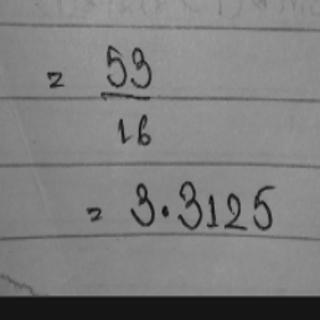 = 53
16
= 3.3125